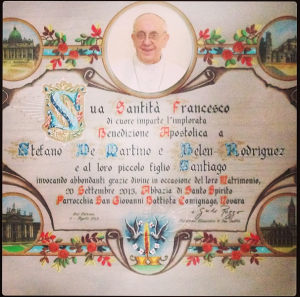 Sua Santità Francesco
di cuore imparte l'implorata
Benedizione Apostolica a
Stefano De Martino e Belen Rodriguez
e al loro piccolo figlio Santiago
invocando abbondanti grazie divine in occasione del loro Matrimonio,
20 Settembre 2013, Abbazia di Santo Spirito
Parrocchia San Giovanni Battista Comignago, Novara